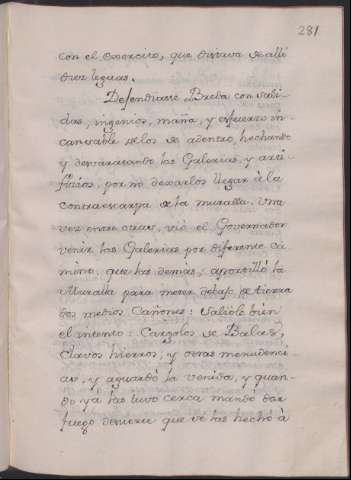 281
con el exercito, que estava de alli
diez leguas.
Defendiasse Breda con sali-
das, ingenios, maña, y esfuerzo in-
cansable de los de adentro, hechando
y desvaratando las Galerias, y arti-
ficios, por no dexarlos llegar à la
contraescarpa de la muralla. Una
vez entre otras, vió el Governador
venir las Galerias por diferente ca
mino, que las demas; aportilló la
Muralla para meter debajo de tierra
dos medios Cañones: Salióle bien
el intento: Cargolos de Balas,
clavos hierros, y otras menudenci
as, y aguardó la venida, y quan-
do ya las tuvo cerca mandó dar
fuego demiere que ve las hechó à